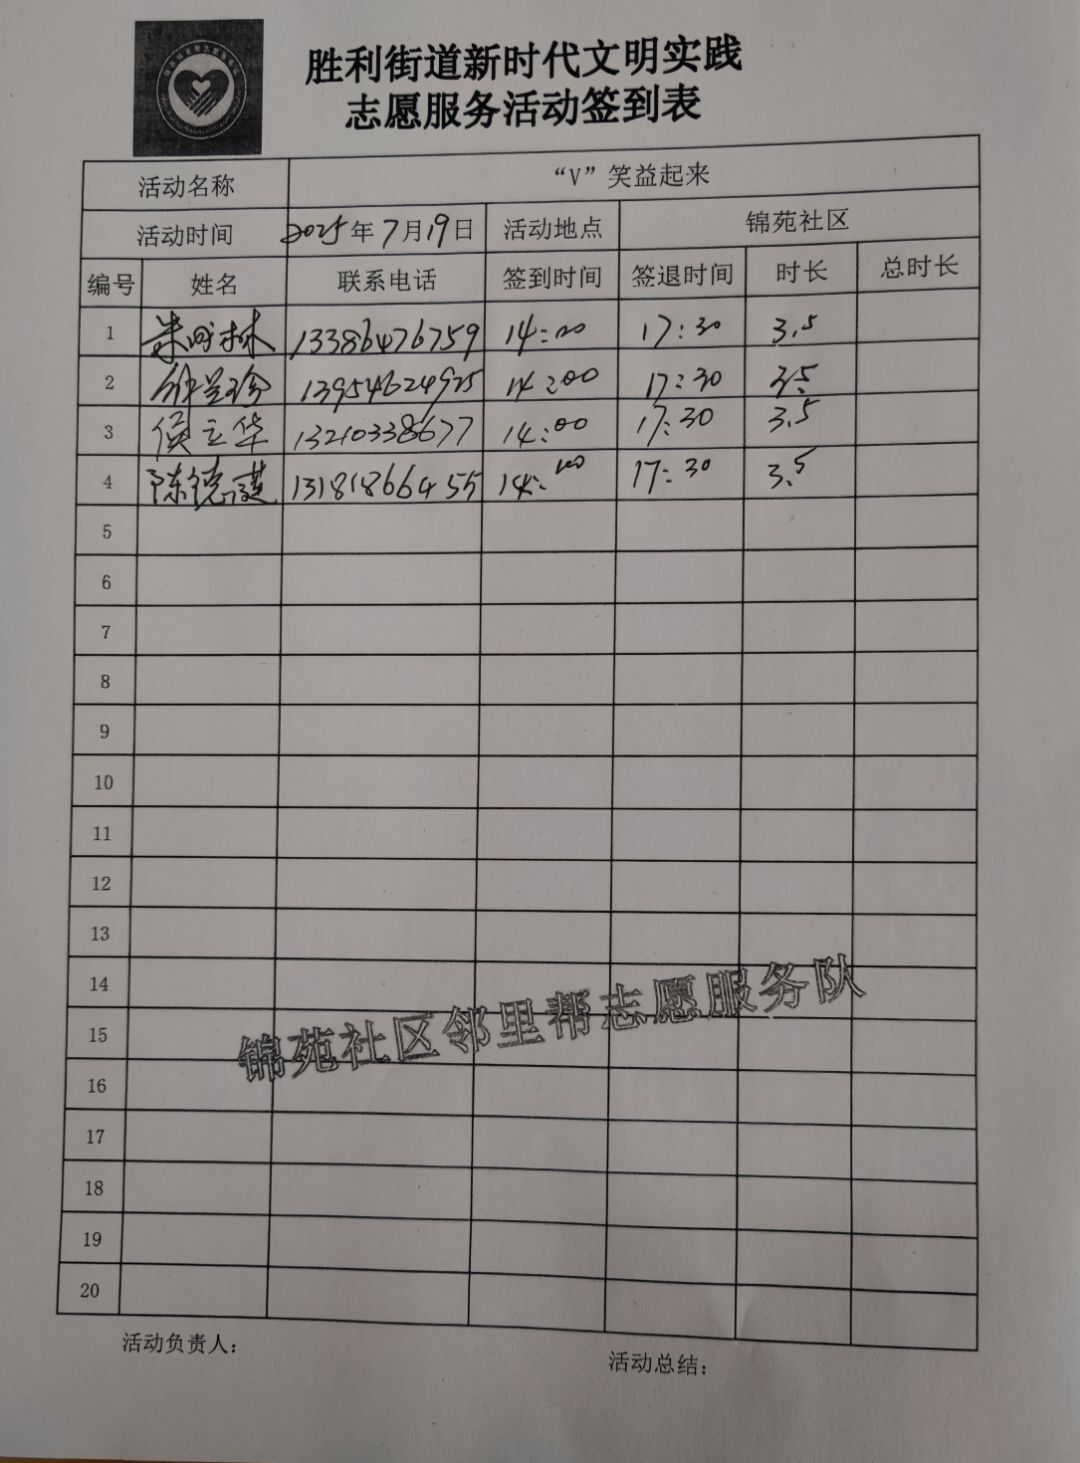 胜利街道新时代文明实践
志愿服务活动签到表
活动名称 “V”笑益起来
活动时间 2025年7月19日 活动地点 锦苑社区
编号 姓名 联系电话 签到时间 签退时间 时长 总时长
1 13386476759 14:00 17:30 3.5
2 13954624925 14:00 17:30 3.5
3 侯立华 13210338677 14:00 17:30 3.5
4 13181866455 14:00 17:30 3.5
5
6
7
8
9
10
11
12
13
14
15
16
17
18
19
20
锦苑社区邻里帮志愿服务队
活动负责人:
活动总结: